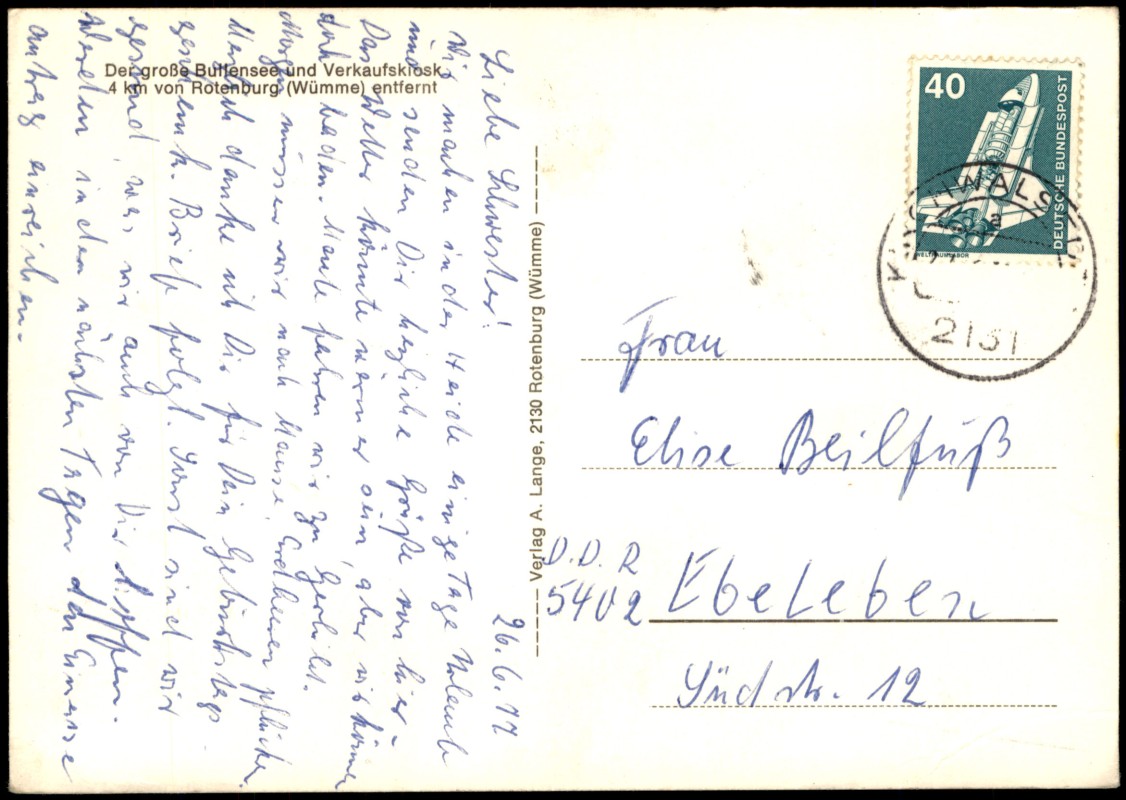 Der große Bullensee und Verkaufskiosk
4 km von Rotenburg (Wümme) entfernt
26.6.77
Liebe Schwester!
Wir machen in der Heide einige Tage Urlaub
und senden Dir herzliche Grüße von hier.
Das Wetter könnte wärmer sein, aber wir können
doch baden. Heute fahren wir zu Gerhilt.
Morgen müssen wir nach Hause, Erdbeeren pflücken.
Herzlich danke ich Dir für Dein Geburtstags
geschenk. Brief folgt. Sonst sind wir
gesund, was wir auch von Dir hoffen.
Werden in den nächsten Tagen den Einreise
antrag einreichen.
Verlag A. Lange, 2130 Rotenburg (Wümme)
40
DEUTSCHE BUNDESPOST
WELTRAUMLABOR
2151
Frau
Elise Beilfuß
D.D.R
5402 Ebeleben
Südstr. 12